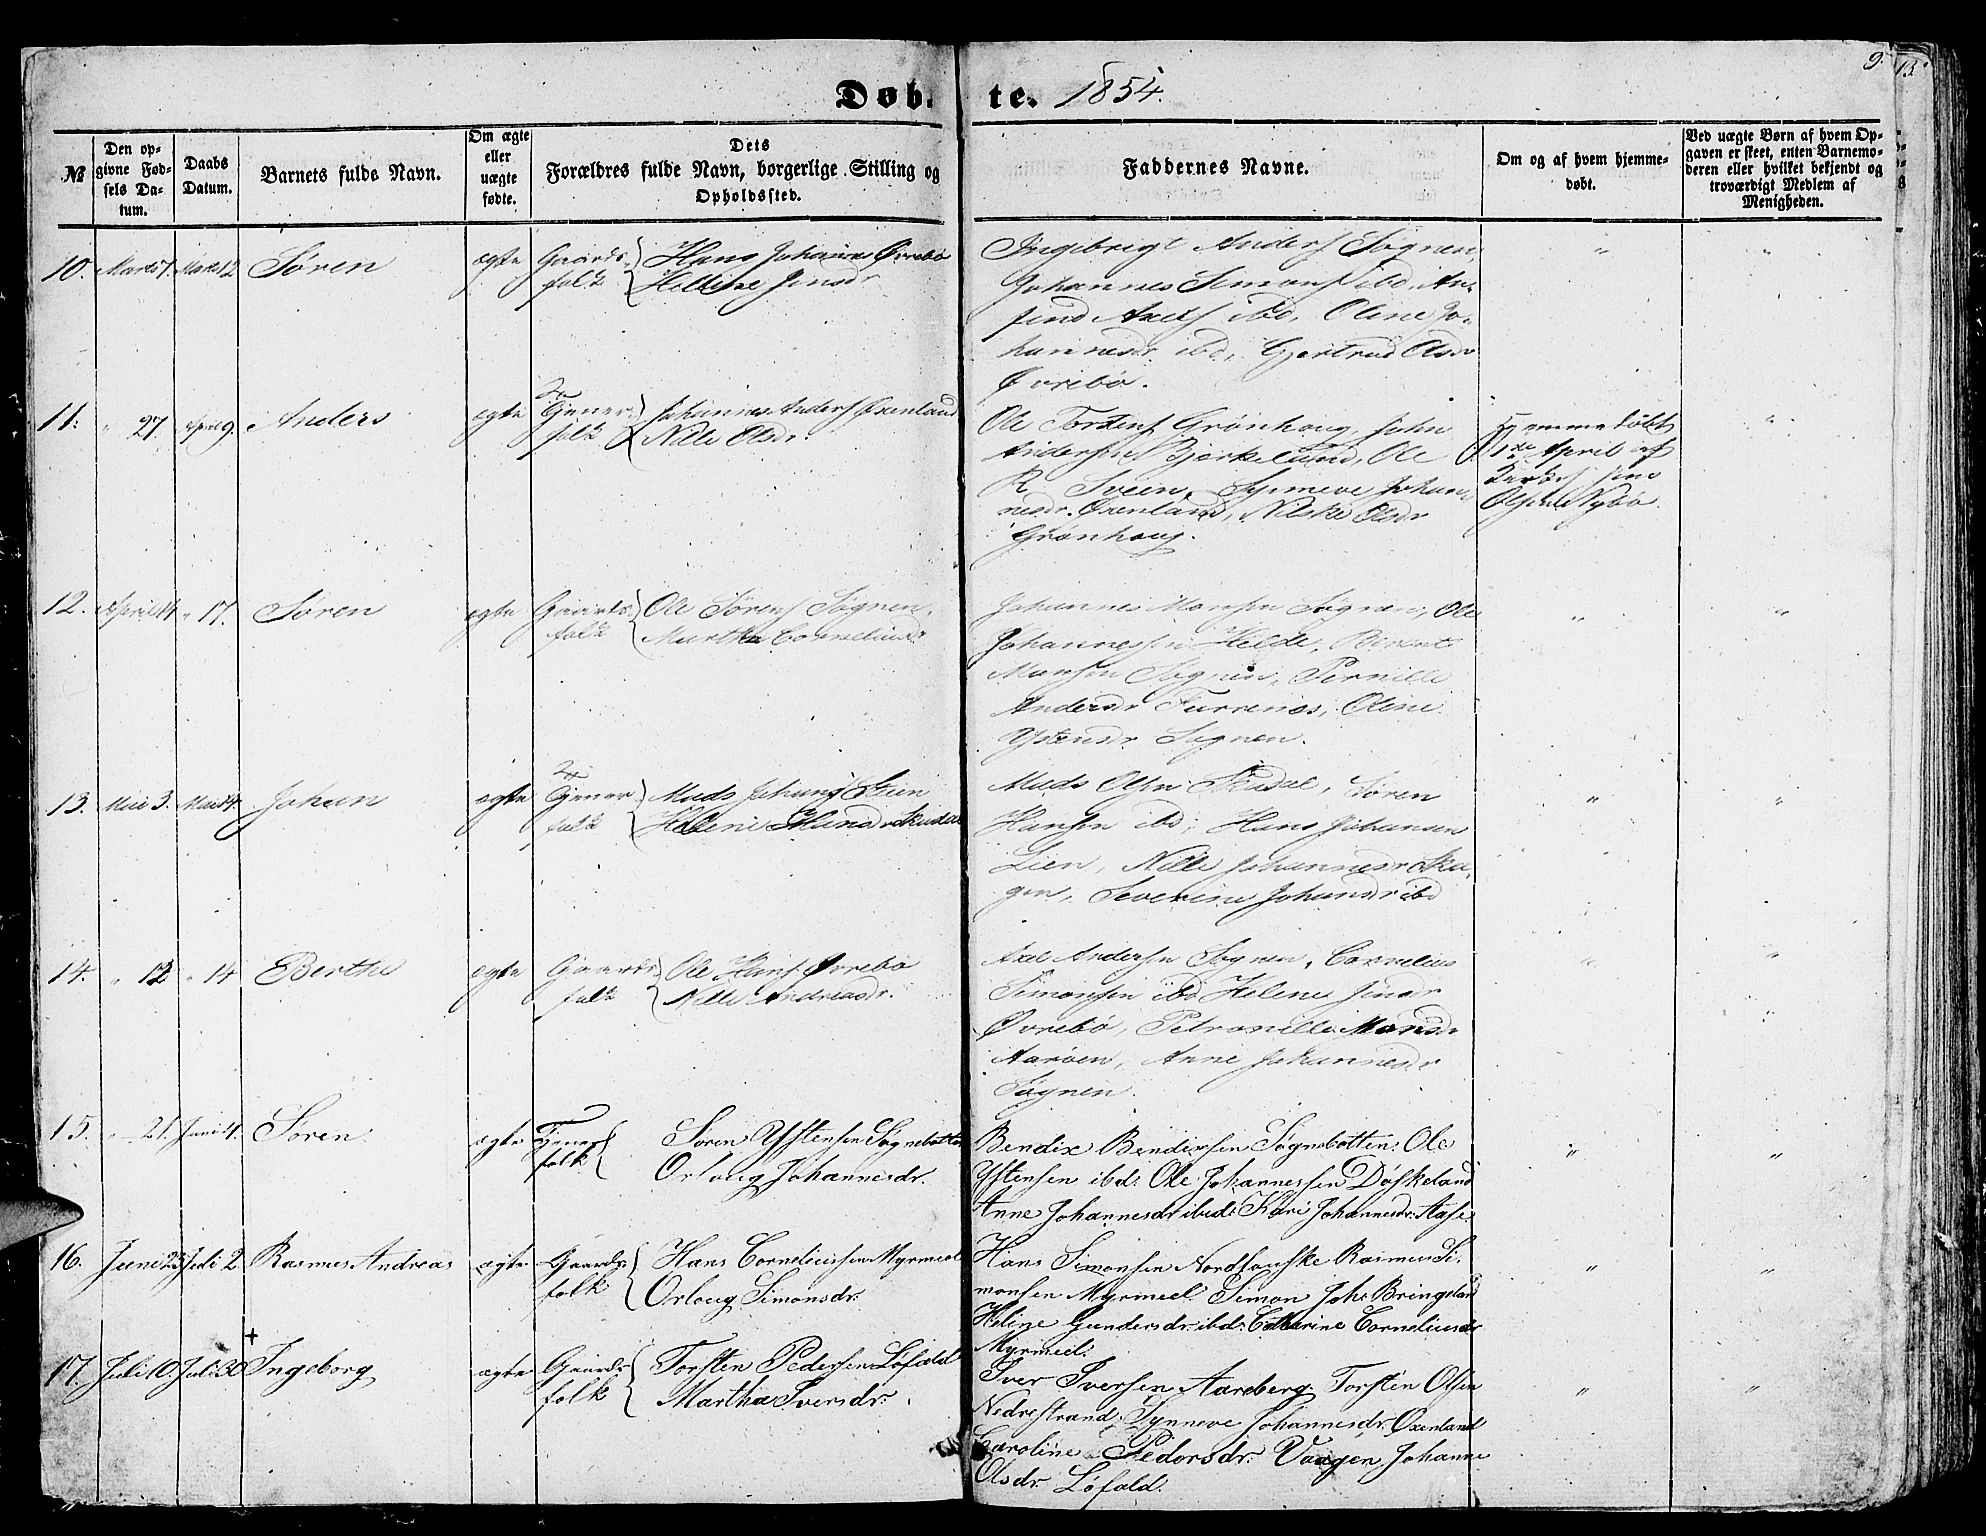 9.
13
Døb- te. 1854.
№
Den op-
givne Fød-
sels Da-
tum.
Daabs
Datum.
Barnets fulde Navn.
Om ægte
eller
uægte
fødte.
Dets
Forældres fulde Navn, borgerlige Stilling og
Opholdssted.
Faddernes Navne.
Om og af hvem hjemme-
døbt.
Ved uægte Børn af hvem Op-
gaven er skeet, enten Barnemo-
deren eller hvilket bekjendt og
troværdigt Medlem af
Menigheden.
10. Marts 7. Marts 12 Søren ægte Gaards- Hans Johans Øvrebø
folk Helline Jensdr
Ingebrigt Anders Søgnen,
Johannes Simons ibd, An-
find Axels ibd, Oline Jo-
hannesdr ibd, Gjertrud Olsdr
Øvrebø.
" "
11. " 27. April 9. Anders ægte Tjener- Johannes Anders Oxenland
folk Nille Olsdr.
Ole Torstens Grønhoug, John
Andersen Bjerkeland, Ole
R Sveen, Synneve Johan-
nesdr. Oxenland, Nilske Olsdr
Grønhoug.
Hjemmedøbt
1ste April af
Kirkes Jens
Olsen Nybø.
"
12. April 14 " 17. Søren ægte Gaards- Ole Sørens Søgnen.
folk Martha Corneliusdr
Johannes Monsen Søgnen, Ole
Johannessen Helde, Berent
Monsen Søgnen, Pernille
Andersdr Furrenes, Oline
Ystensdr Søgnen.
" "
13. Mai 3. Mai 4. Johan ægte Tjener- Mads Johans Steen
folk Helene
Mads Olsen Skudal, Søren
Hansen ibd, Hans Johansen
Lien, Nille Johannesdr Ska-
gen, Severine Johansdr ibd
" "
14. " 12 " 14 Berthe ægte Gaards- Ole Hans Øvrebø
folk Nille Andreasdr.
Axel Andersen Søgnen, Cornelius
Simonsen ibd Helene Jensdr
Øvrebø, Petronelle Monsdr
Aarøen, Anne Johannesdr
Søgnen.
" "
"
15. " 21. Juni 4. Søren. ægte Tjener Søren Ystensen Søgnebotten
folk Orloug Johannesdr.
Bendix Bendixsen Søgnebotten. Ole
Ystensen ibd: Ole Johannessen Døskeland
Anne Johannesdr ibid: Kari Johannesdr. Aase.
" "
16. Juni 23 Juli 2. Rasmus Andreas ægte Gaards- Hans Corneliussen Myrmeel
folk Orloug Simonsdr.
Hans Simonsen Nordtouske Rasmus Si-
monsen Myrmeel. Simon Joh: Bringeland
Heline Gundersdr ibd: Catharine Corneliusdr
Myrmeel.
" "
17. Juli 10. Juli 30 + Ingeborg ægte Gaards- Torsten Pedersen Løfald
folk Martha Iversdr.
Iver Iversen Aareberg Torsten Olsen
Nedrestrand Synneve Johannesdr. Oxenland
Caroline Pedersdr. Vaagen. Johanne
Olsdr. Løfald.
" "